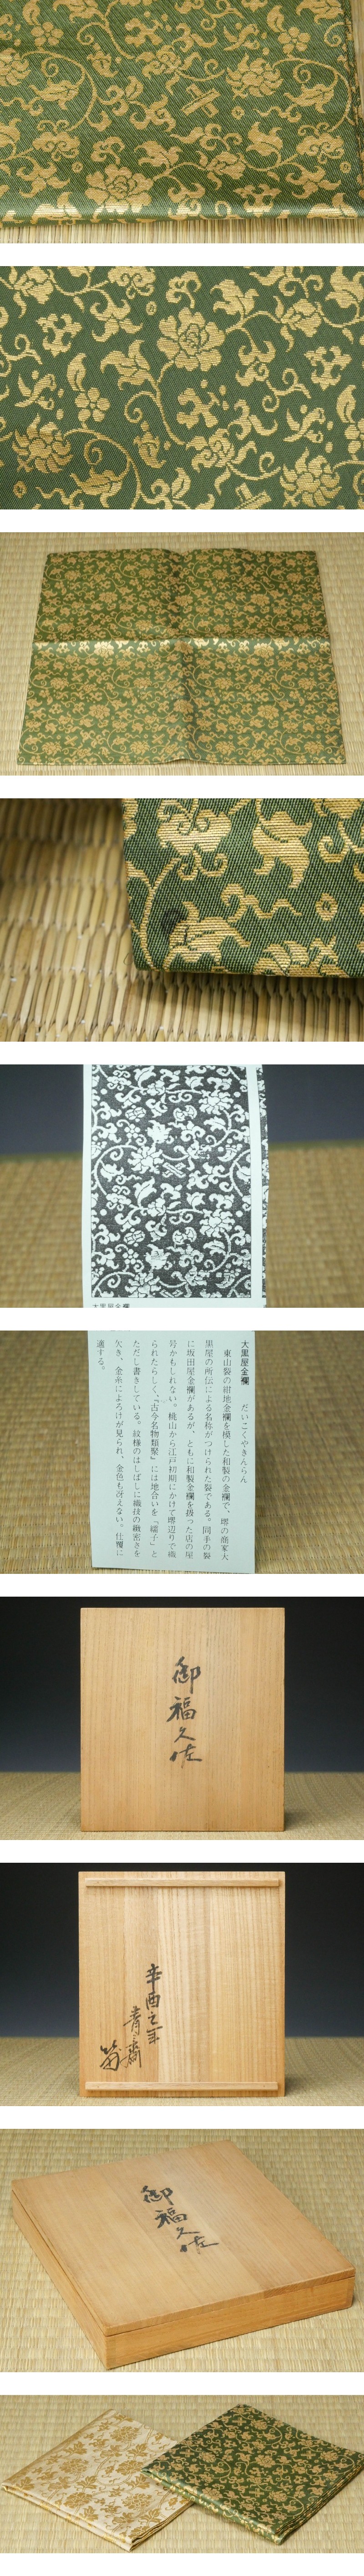 大黒屋金襴
大黒屋金襴　だいこくやきんらん
東山裂の紺地金襴を模した和製の金襴で、堺の商家大
黒屋の所伝による名称がつけられた裂である。同手の裂
に坂田屋金襴があるが、ともに和製金襴を扱った店の屋
号かもしれない。桃山から江戸初期にかけて堺辺りで織
られたらしく、『古今名物類聚』には地合いを「繻子」と
ただし書きしている。紋様のはしばしに織技の緻密さを
欠き、金糸によろけが見られ、金色も冴えない。仕覆に
適する。
御福久佐
辛酉之年
青斎
御福久佐